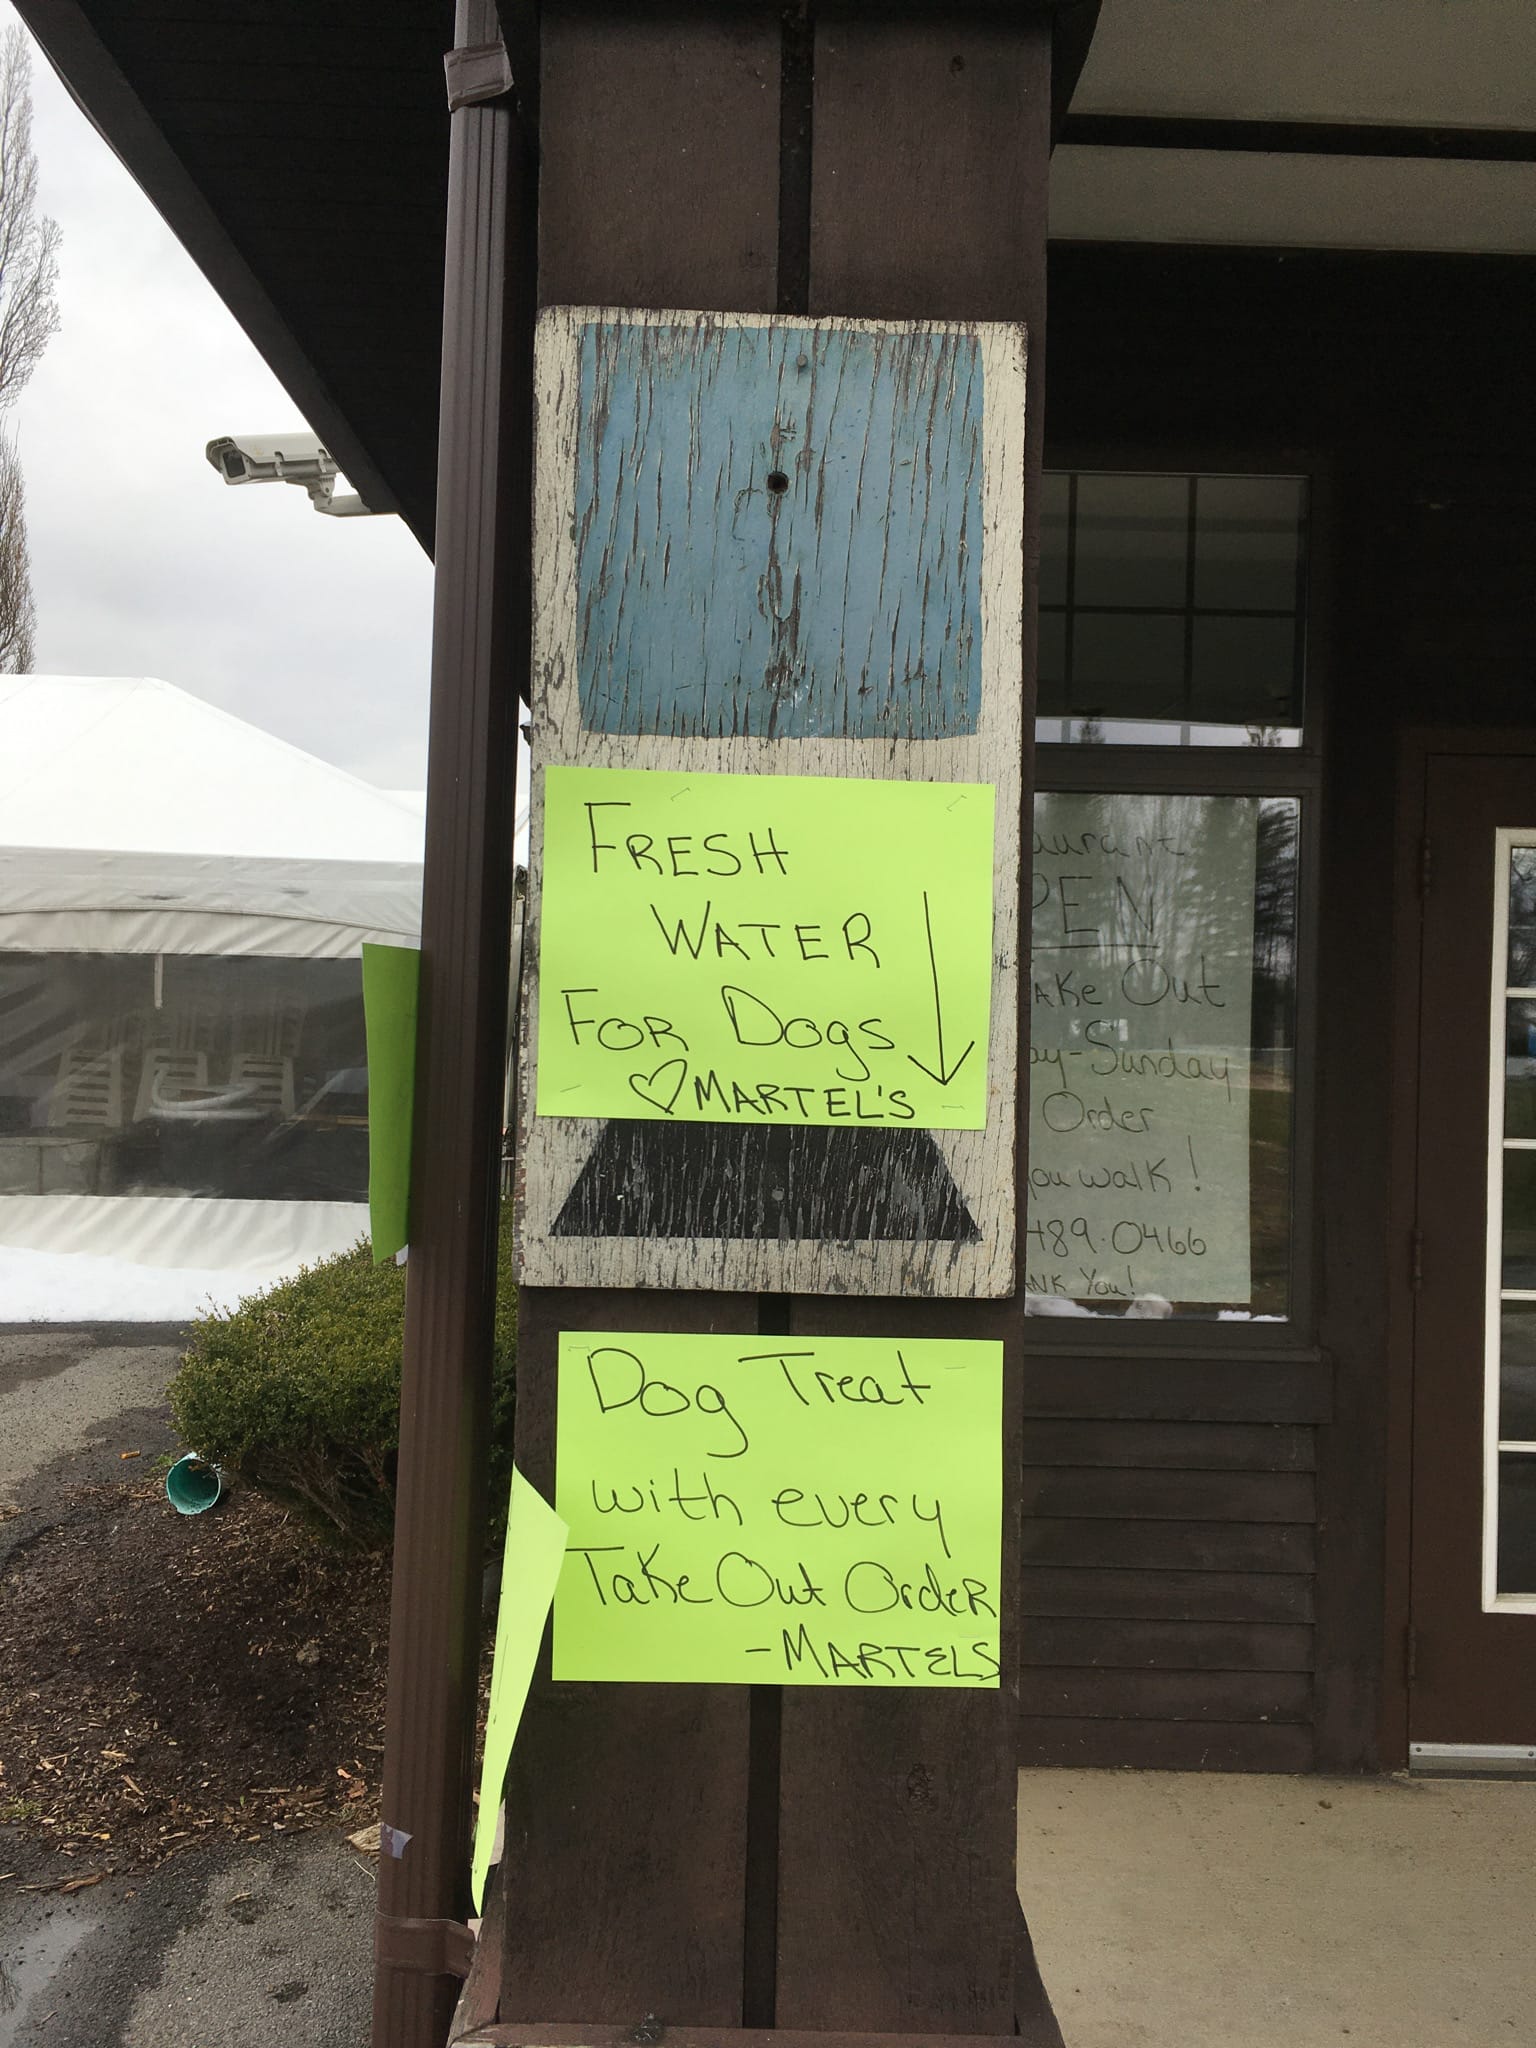 FRESH
WATER
FOR Dogs
♡ MARTEL'S
Dog Treat
with every
Take Out Order
- MARTELS
Out
-Sunday
Order
walk!
489.0466
You!